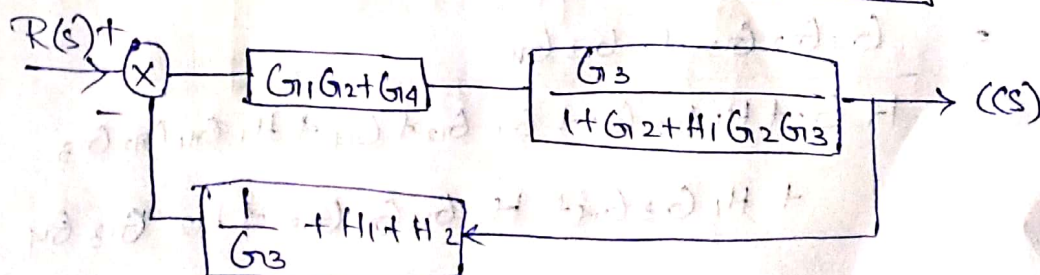 R(S) +
X
G1G2+G4
G3
1+G2+H1G2G3
C(S)
-
1
G3
+ H1 + H2